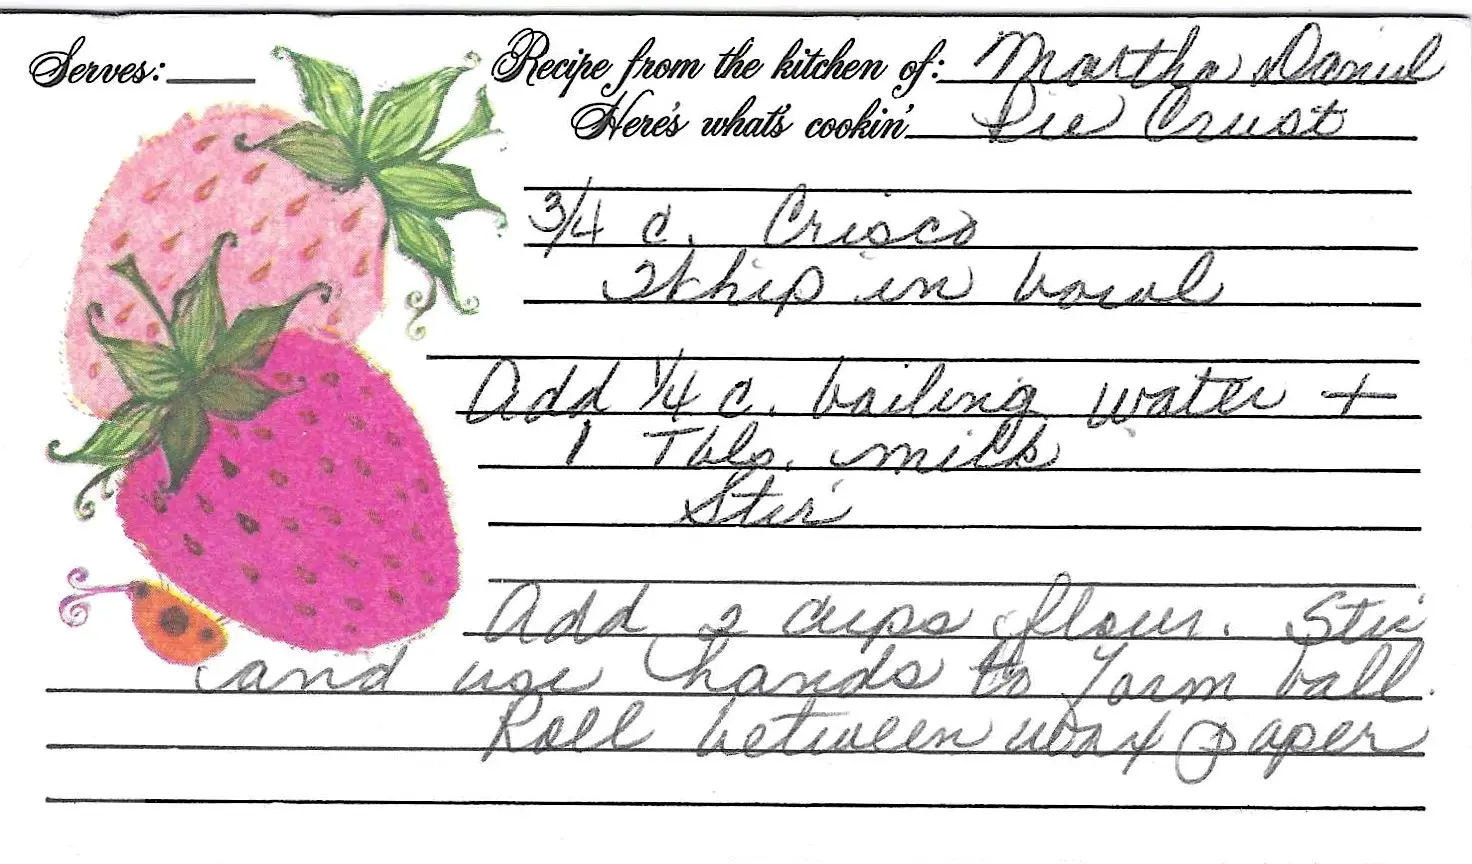 Serves: Recipe from the kitchen of: Martha Daniel
Here's what's cookin' Pie Crust
3/4 c. Crisco
Whip in bowl
Add 1/4 c. boiling water +
1 Tbls. milk
Stir
Add 2 cups flour. Stir
and use hands to form ball.
Roll between wax paper